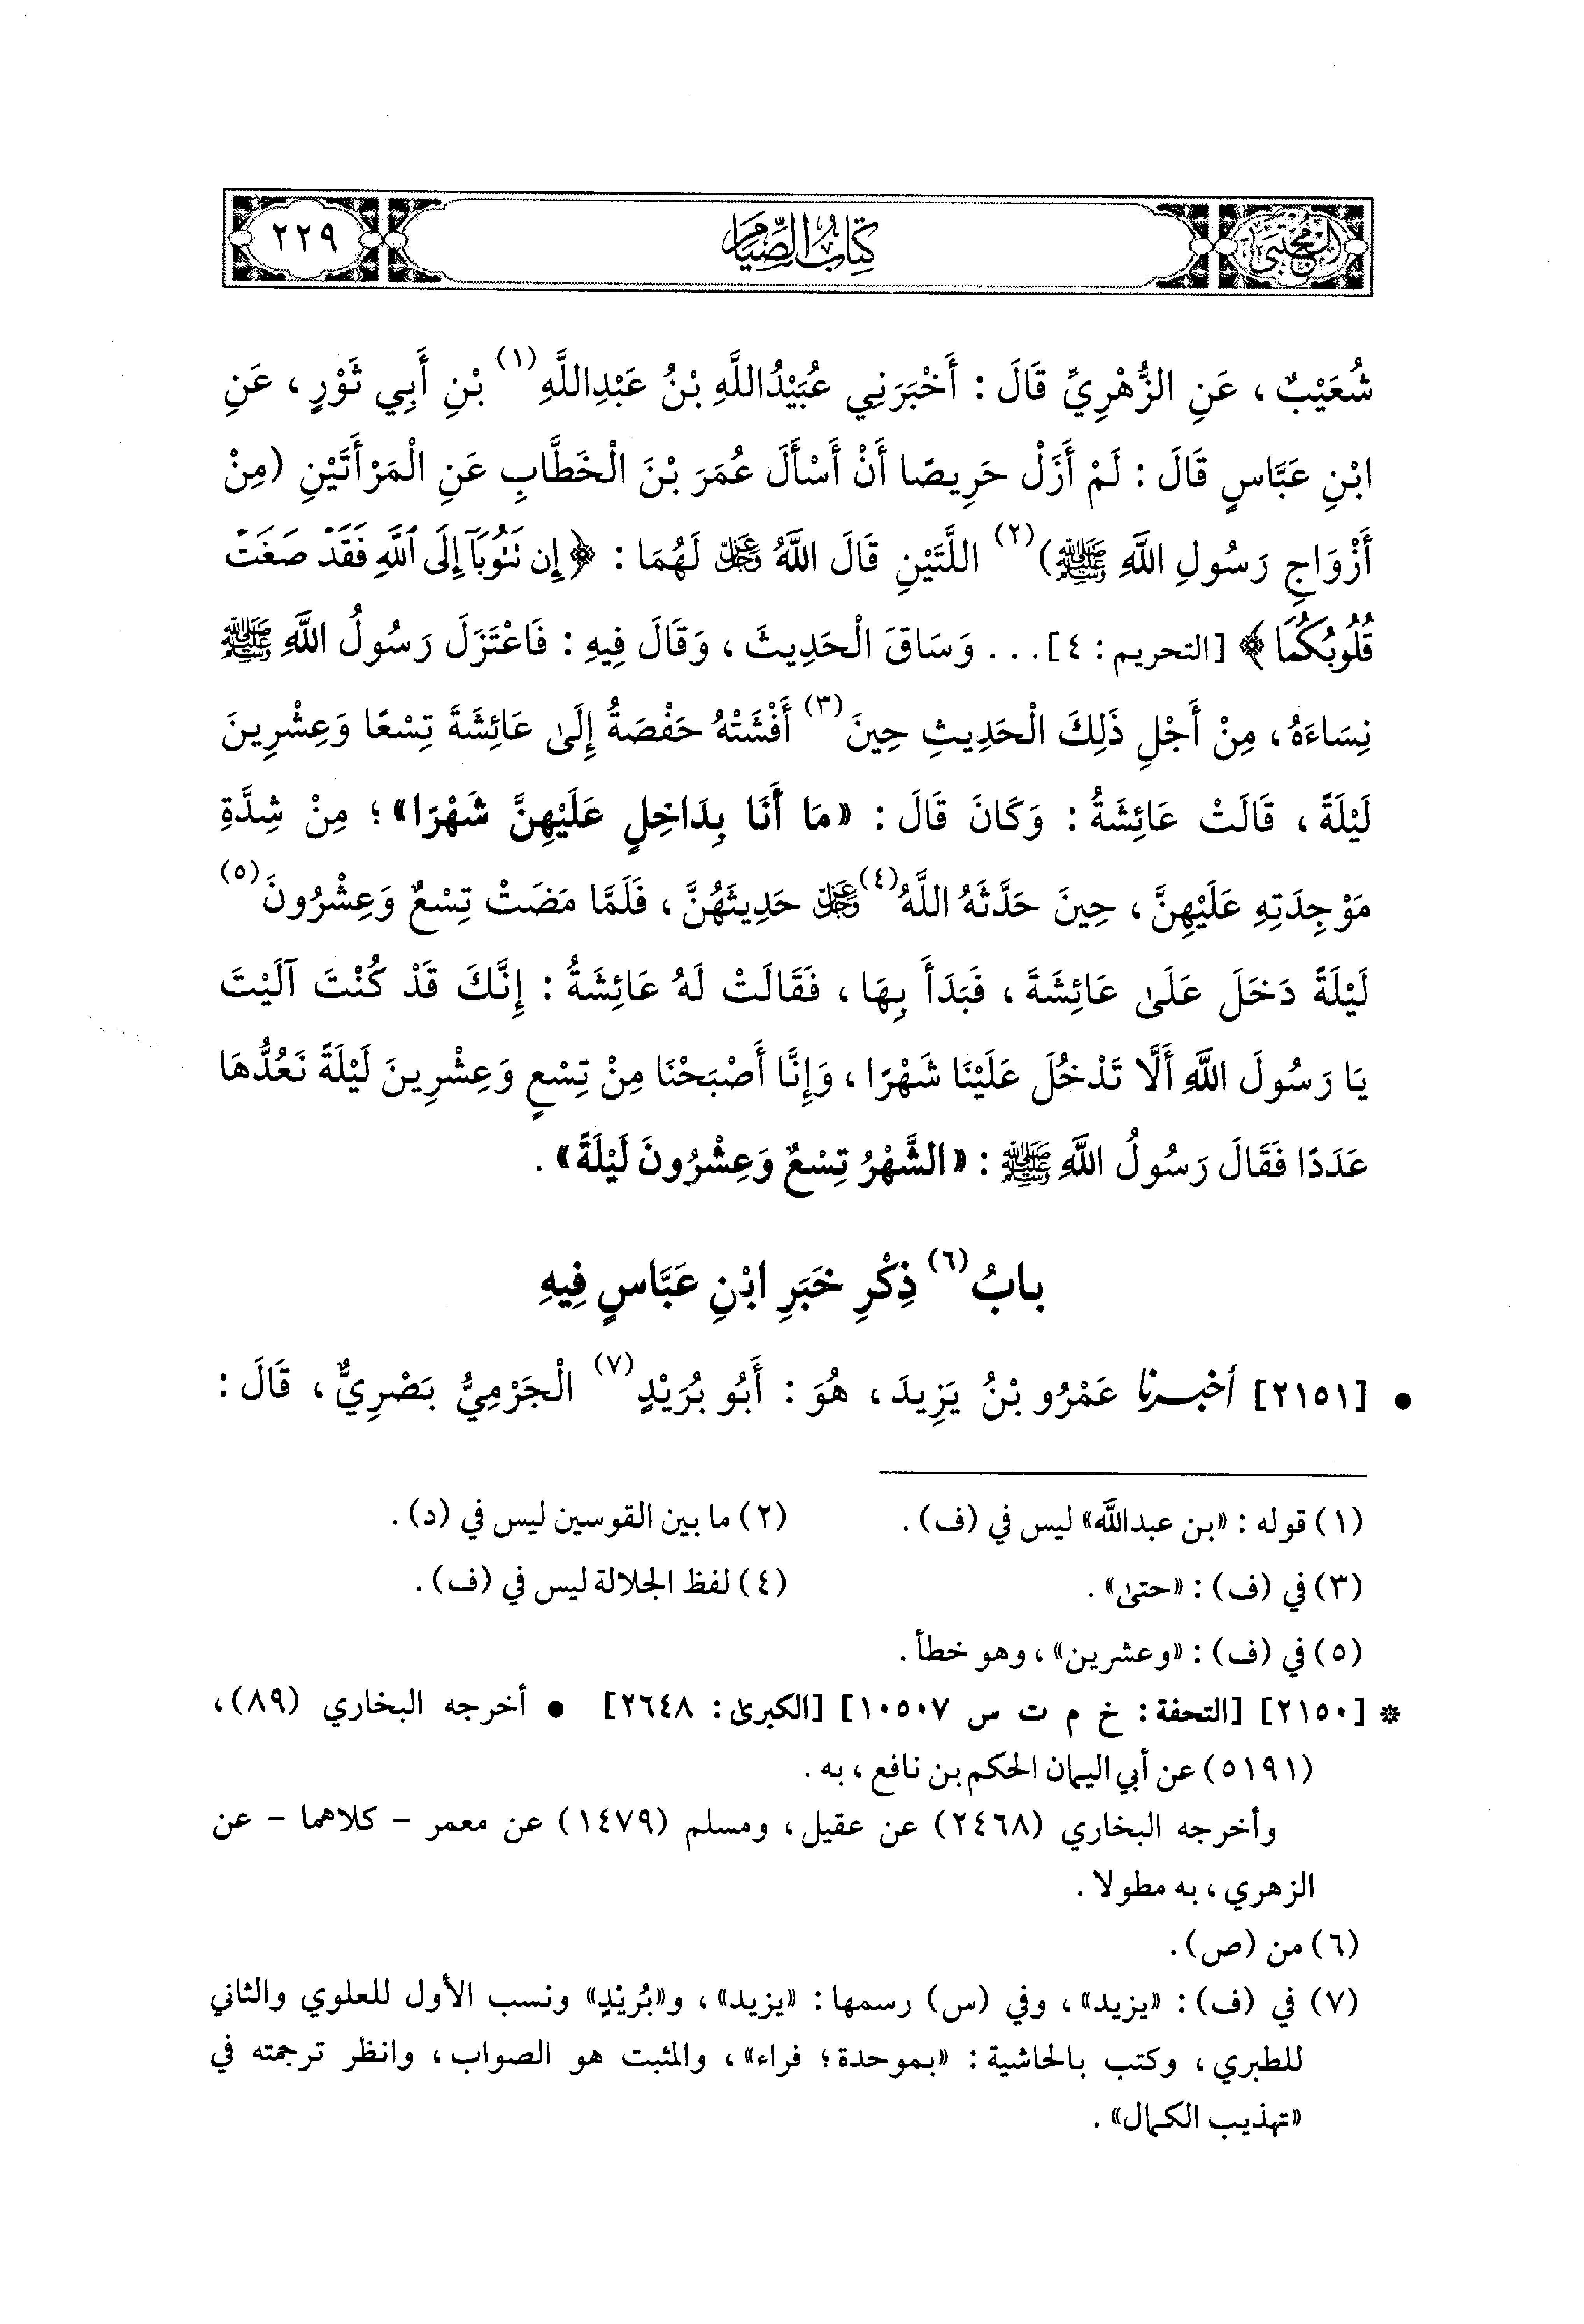 المجتبى كتاب الصيام ٢٢٩
شُعَيْبٌ، عَنِ الزُّهْرِيِّ قَالَ: أَخْبَرَنِي عُبَيْدُاللَّهِ بْنُ عَبْدِاللَّهِ(١) بْنِ أَبِي ثَوْرٍ، عَنِ
ابْنِ عَبَّاسٍ قَالَ: لَمْ أَزَلْ حَرِيصًا أَنْ أَسْأَلَ عُمَرَ بْنَ الْخَطَّابِ عَنِ الْمَرْأَتَيْنِ (مِنْ
أَزْوَاجِ رَسُولِ اللَّهِ ﷺ)(٢) اللَّتَيْنِ قَالَ اللَّهُ عَزَّ وَجَلَّ لَهُمَا: ﴿إِن تَتُوبَآ إِلَى ٱللَّهِ فَقَدۡ صَغَتۡ
قُلُوبُكُمَا﴾ [التحريم: ٤]... وَسَاقَ الْحَدِيثَ، وَقَالَ فِيهِ: فَاعْتَزَلَ رَسُولُ اللَّهِ ﷺ
نِسَاءَهُ، مِنْ أَجْلِ ذَلِكَ الْحَدِيثِ حِينَ(٣) أَفْشَتْهُ حَفْصَةُ إِلَىٰ عَائِشَةَ تِسْعًا وَعِشْرِينَ
لَيْلَةً، قَالَتْ عَائِشَةُ: وَكَانَ قَالَ: «مَا أَنَا بِدَاخِلٍ عَلَيْهِنَّ شَهْرًا»؛ مِنْ شِدَّةِ
مَوْجِدَتِهِ عَلَيْهِنَّ، حِينَ حَدَّثَهُ اللَّهُ(٤) عَزَّ وَجَلَّ حَدِيثَهُنَّ، فَلَمَّا مَضَتْ تِسْعٌ وَعِشْرُونَ(٥)
لَيْلَةً دَخَلَ عَلَىٰ عَائِشَةَ، فَبَدَأَ بِهَا، فَقَالَتْ لَهُ عَائِشَةُ: إِنَّكَ قَدْ كُنْتَ آلَيْتَ
يَا رَسُولَ اللَّهِ أَلَّا تَدْخُلَ عَلَيْنَا شَهْرًا، وَإِنَّا أَصْبَحْنَا مِنْ تِسْعٍ وَعِشْرِينَ لَيْلَةً نَعُدُّهَا
عَدَدًا فَقَالَ رَسُولُ اللَّهِ ﷺ: «الشَّهْرُ تِسْعٌ وَعِشْرُونَ لَيْلَةً».
بابُ(٦) ذِكْرِ خَبَرِ ابْنِ عَبَّاسٍ فِيهِ
• [٢١٥١] أخبرنا عَمْرُو بْنُ يَزِيدَ، هُوَ: أَبُو بُرَيْدٍ(٧) الْجَرْمِيُّ بَصْرِيٌّ، قَالَ:
(١) قوله: «بن عبدالله» ليس في (ف). (٢) ما بين القوسين ليس في (د).
(٣) في (ف): «حتىٰ». (٤) لفظ الجلالة ليس في (ف).
(٥) في (ف): «وعشرين»، وهو خطأ.
* [٢١٥٠] [التحفة: خ م ت س ١٠٥٠٧] [الكبرىٰ: ٢٦٤٨] • أخرجه البخاري (٨٩)،
(٥١٩١) عن أبي اليمان الحكم بن نافع، به.
وأخرجه البخاري (٢٤٦٨) عن عقيل، ومسلم (١٤٧٩) عن معمر - كلاهما - عن
الزهري، به مطولا.
(٦) من (ص).
(٧) في (ف): «يزيد»، وفي (س) رسمها: «يزيد»، و«بُرَيْدٍ» ونسب الأول للعلوي والثاني
للطبري، وكتب بالحاشية: «بموحدة؛ فراء»، والمثبت هو الصواب، وانظر ترجمته في
«تهذيب الكمال».